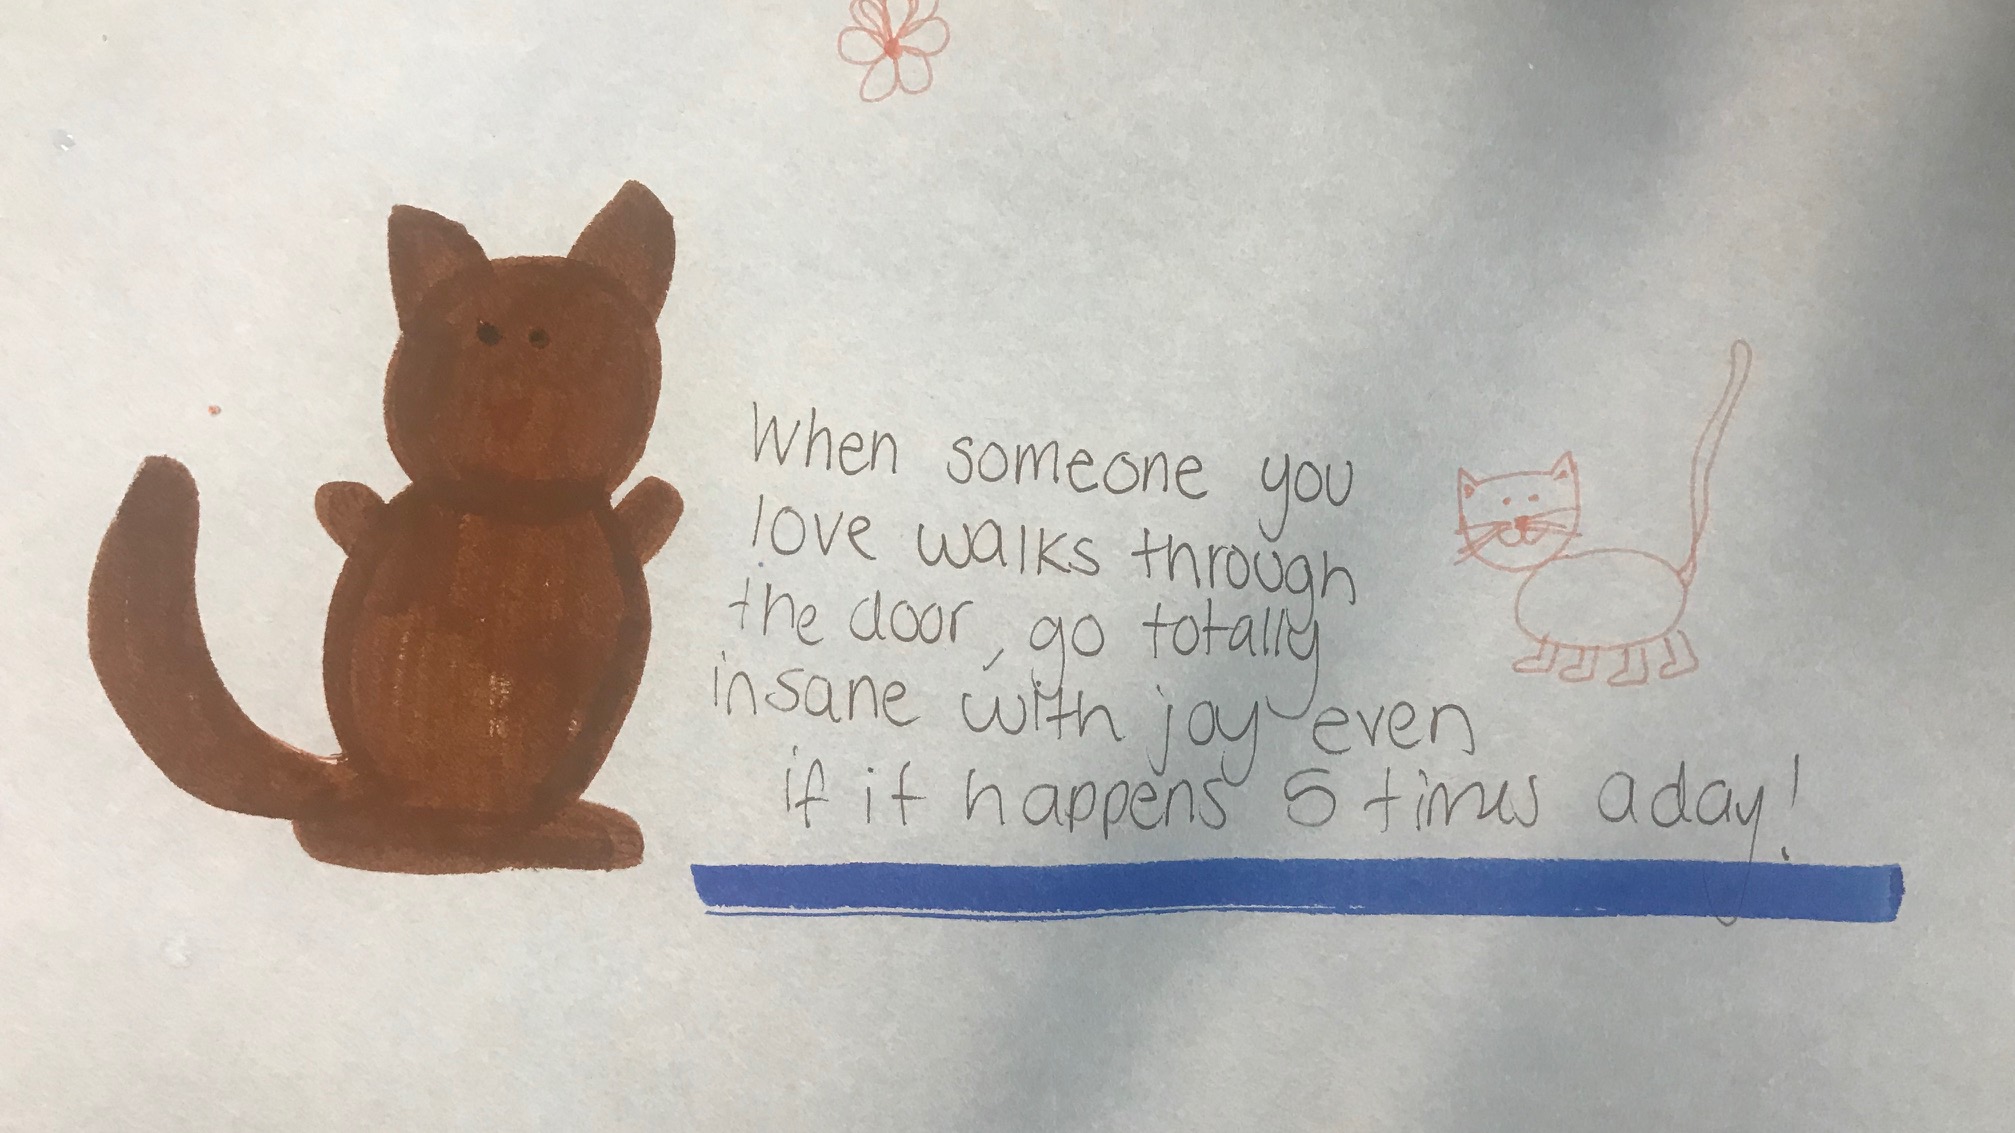 When someone you
love walks through
the door, go totally
insane with joy even
if it happens 5 times a day!